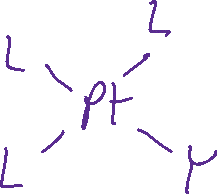 L L
Pt
L Y